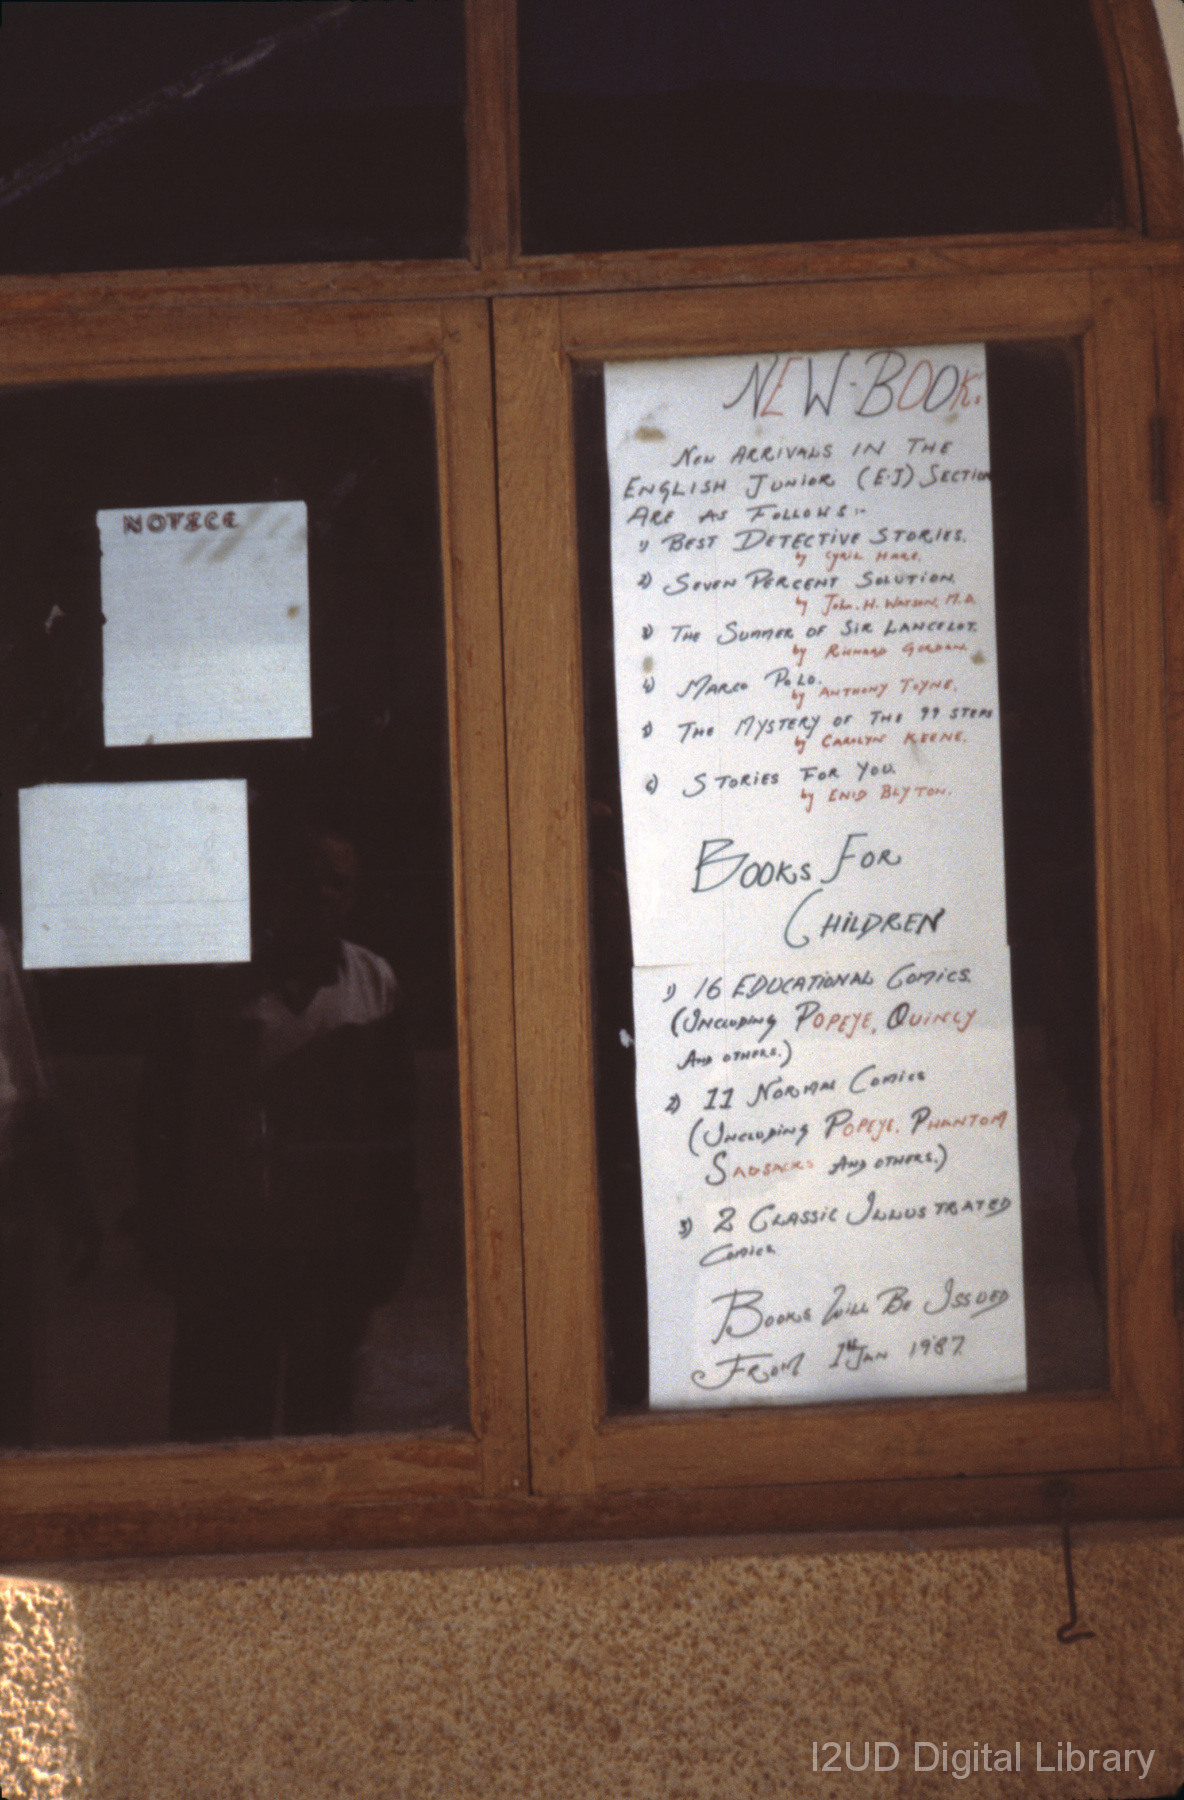 NOTICE
NEW-BOOK.
NEW ARRIVALS IN THE
ENGLISH JUNIOR (E.J) SECTION
ARE AS FOLLOWS:-
1) BEST DETECTIVE STORIES.
by CYRIL HARE.
2) SEVEN PERCENT SOLUTION.
by John. H. WATSON, M.D.
3) THE SUMMER OF SIR LANCELOT.
by RICHARD GORDAN.
4) MARCO POLO.
by ANTHONY TOYNE.
5) THE MYSTERY OF THE 99 STEPS
by CAROLYN KEENE.
6) STORIES FOR YOU.
by ENID BLYTON.
BOOKS FOR
CHILDREN
1) 16 EDUCATIONAL COMICS.
(INCLUDING POPEYE, QUINCY
AND OTHERS.)
2) 11 NORMAL COMICS
(INCLUDING POPEYE, PHANTOM
SADSACKS AND OTHERS.)
3) 2 CLASSIC ILLUSTRATED
COMICS
BOOKS WILL BE ISSUED
FROM 1st JAN 1987.
I2UD Digital Library